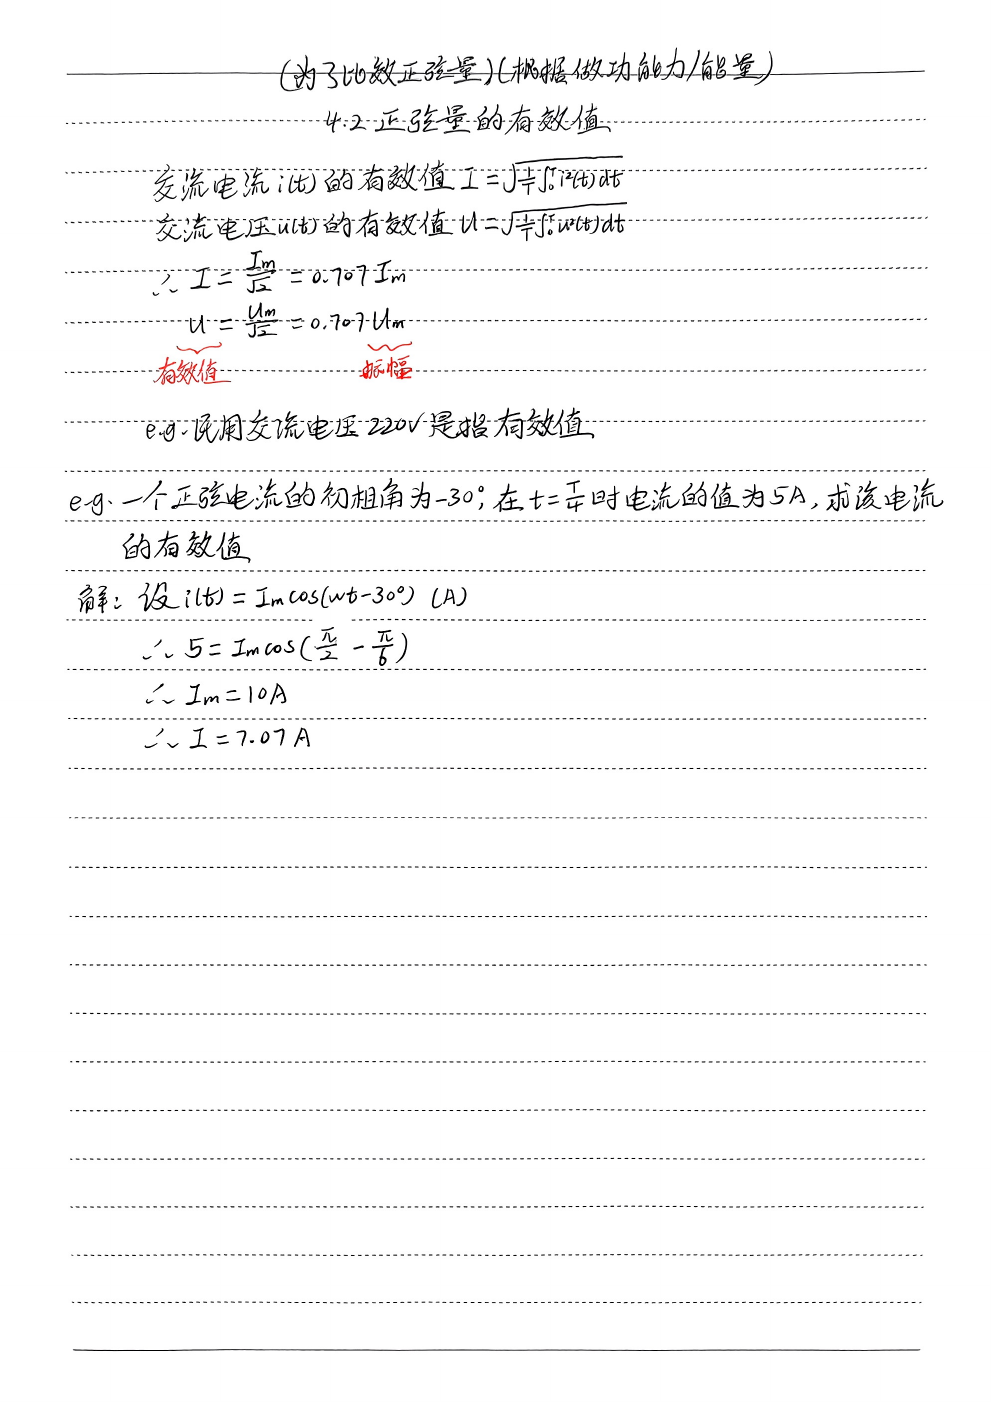 (为了比效正弦量)(根据做功能力/能量)
4.2 正弦量的有效值
交流电流i(t)的有效值 I=√(1/T ∫₀ᵀ i²(t)dt)
交流电压u(t)的有效值 U=√(1/T ∫₀ᵀ u²(t)dt)
∴ I = Im/√2 = 0.707 Im
U = Um/√2 = 0.707 Um
有效值 振幅
e.g. 民用交流电压 220V 是指有效值
e.g. 一个正弦电流的初相角为-30°,在t=T/4时电流的值为5A,求该电流
的有效值
解: 设i(t)=Imcos(wt-30°) (A)
∴ 5=Imcos(π/2 - π/6)
∴ Im=10A
∴ I=7.07A